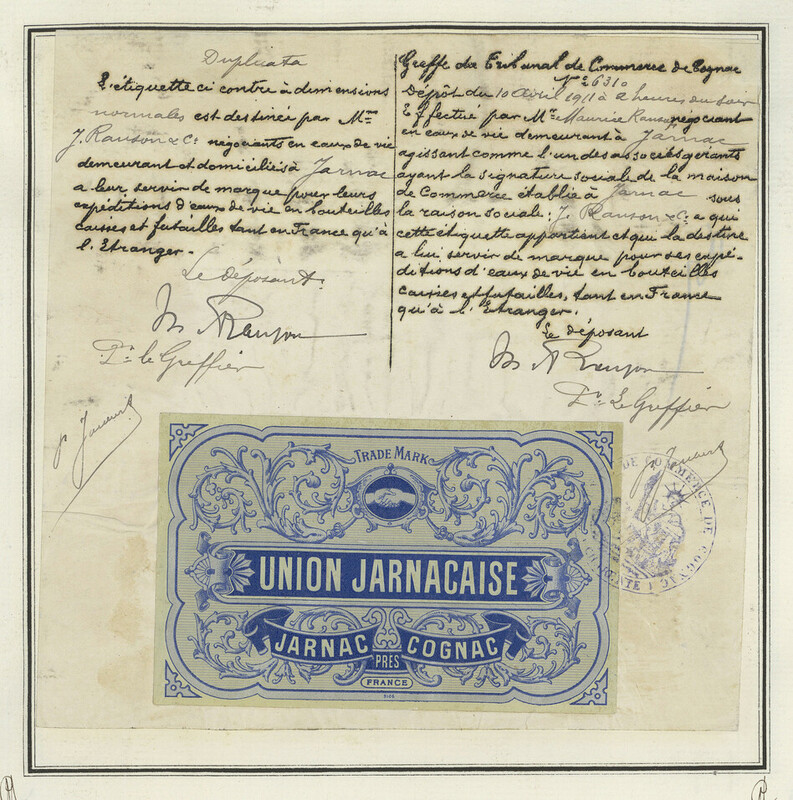 Duplicata
L'étiquette ci contre à dimensions
normales est destinée par Mrs
J. Ranson & Cie négociants en eaux de vie
demeurant et domiciliés à Jarnac
a leur servir de marque pour leurs
expéditions d'eaux de vie en bouteilles
caisses et futailles tant en France qu'à
l'Etranger.
Le déposant.
M Ranson
Pr le Greffier
Greffe du Tribunal de Commerce de Cognac
No 6310
Dépôt du 10 Avril 1911 à 2 heures du soir
Effectué par Mr Maurice Ranson négociant
en eaux de vie demeurant à Jarnac
agissant comme l'un des associés gérants
ayant la signature sociale de la maison
de Commerce établie à Jarnac sous
la raison sociale: J. Ranson & Cie a qui
cette étiquette appartient et qui la destine
a lui servir de marque pour ses expé-
ditions d'eaux de vie en bouteilles
caisses et futailles, tant en France
qu'à l'Etranger.
Le déposant
M Ranson
Pr Le Greffier
TRADE MARK
UNION JARNACAISE
JARNAC PRÈS COGNAC
FRANCE
DE COMMERCE DE COGNAC